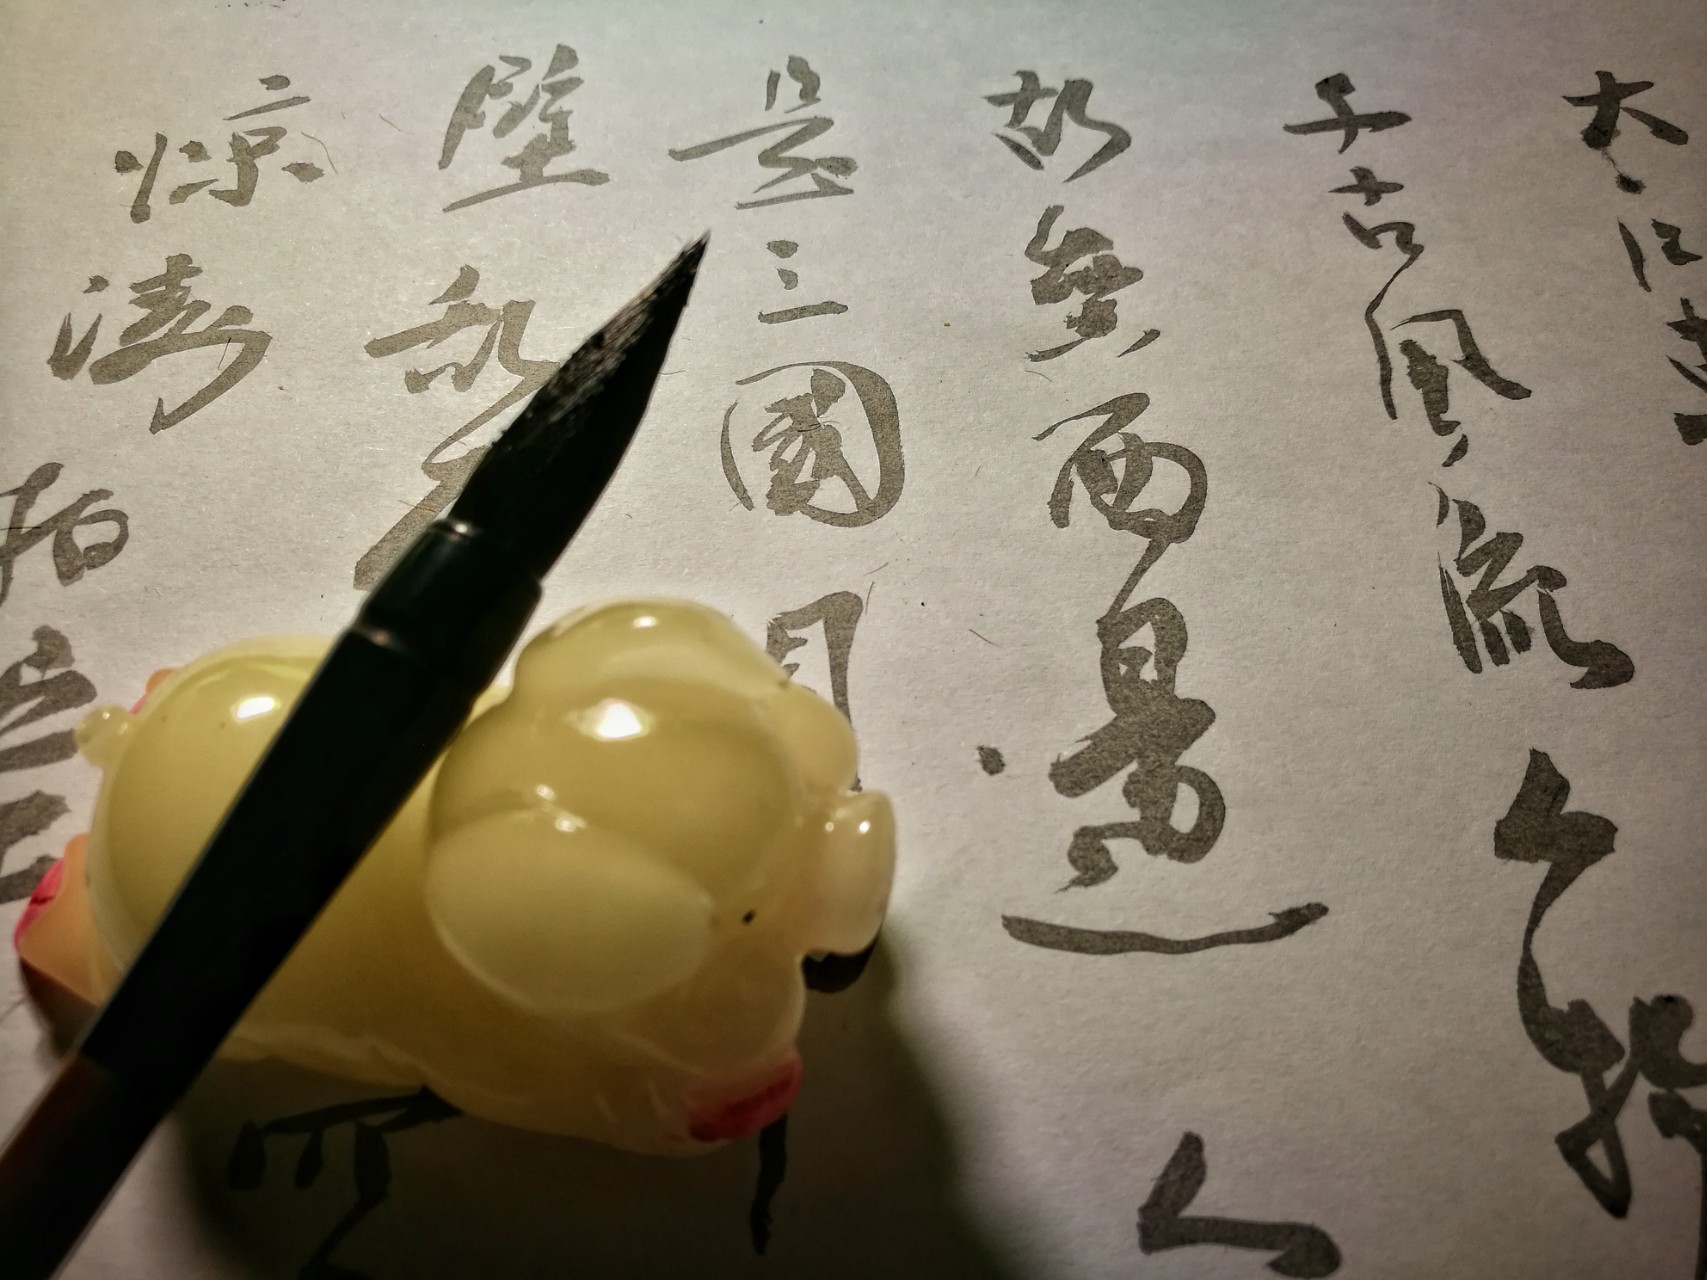 大江東
千古風流人物
故壘西邊人
是三國周
壁乱石
惊涛拍岸